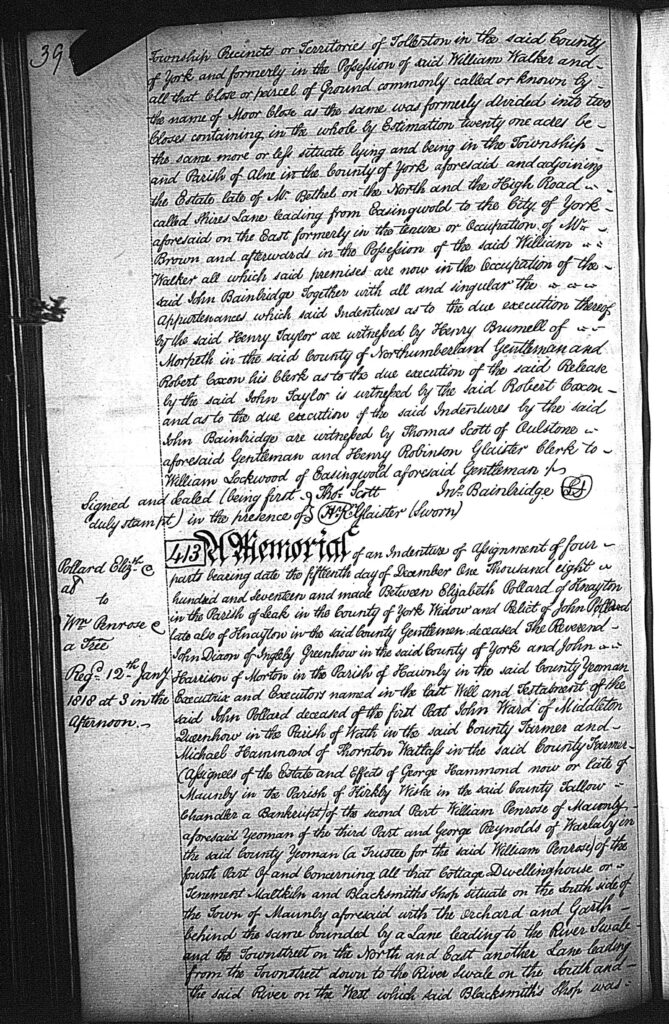 39
Township Precincts or Territories of Tollerton in the said County
of York and formerly in the Possession of said William Walker and
all that Close or parcel of Ground commonly called or known by
the name of Moor Close as the same was formerly divided into two
Closes containing in the whole by Estimation twenty one acres be
the same more or less situate lying and being in the Township
and Parish of Alne in the County of York aforesaid and adjoining
the Estate late of Mr. Bethel on the North and the High Road
called Shires Lane leading from Easingwold to the City of York
aforesaid on the East formerly in the tenure or Occupation of Mr.
Brown and afterwards in the Possession of the said William
Walker all which said premises are now in the Occupation of the
said John Bainbridge Together with all and singular the
Appurtenances which said Indentures as to the due execution thereof
by the said Henry Taylor are witnessed by Henry Brumell of
Morpeth in the said County of Northumberland Gentleman and
Robert Coxon his Clerk as to the due execution of the said Release
by the said John Taylor is witnessed by the said Robert Coxon
and as to the due execution of the said Indentures by the said
John Bainbridge are witnessed by Thomas Scott of Oulstone
aforesaid Gentleman and Henry Robinson Glaister Clerk to
William Lockwood of Easingwold aforesaid Gentleman
Signed and Sealed (being first Thos. Scott Jno. Bainbridge LS
duly stampt) in the presence of H. R. Glaister (Sworn)
413 A Memorial of an Indenture of Assignment of four
parts bearing date the fifteenth day of December One Thousand eight
hundred and seventeen and made Between Elizabeth Pollard of Knayton
in the Parish of Leak in the County of York Widow and Relict of John Pollard
late also of Knayton in the said County Gentleman deceased The Reverend
John Dixon of Ingleby Greenhow in the said County of York and John
Harrison of Morton in the Parish of Hawnby in the said County Yeoman
Executrix and Executors named in the last Will and Testament of the
said John Pollard deceased of the first Part John Ward of Middleton
Quernhow in the Parish of Wath in the said County Farmer and
Michael Hammond of Thornton Watlass in the said County Farmer
(Assignees of the Estate and Effects of George Hammond now or late of
Maunby in the Parish of Kirkby Wiske in the said County Tallow
Chandler a Bankrupt) of the second Part William Penrose of Maunby
aforesaid Yeoman of the third Part and George Reynolds of Warlaby in
the said County Yeoman (a Trustee for the said William Penrose) of the
fourth Part Of and Concerning All that Cottage Dwellinghouse or
Tenement Maltkiln and Blacksmiths Shop situate on the South side of
the Town of Maunby aforesaid with the orchard and Garth
behind the same bounded by a Lane leading to the River Swale
and the Townstreet on the North and East another Lane leading
from the Townstreet down to the River Swale on the South and
the said River on the West which said Blacksmith's Shop was
Pollard Elizth. &
al
to
Wm. Penrose &
a Tree
Regd. 12th Jany
1818 at 3 in the
Afternoon.